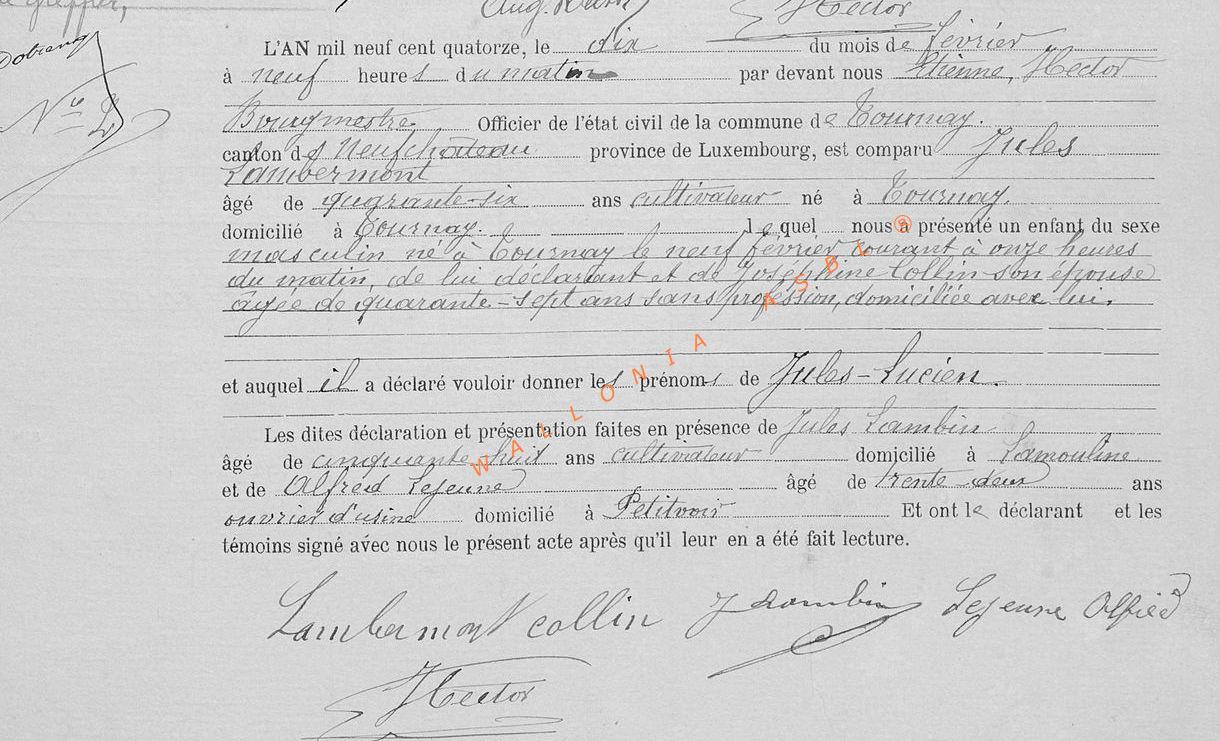 Aug.
Hector
L'AN mil neuf cent quatorze, le dix du mois de février
à neuf heures du matin par devant nous Etienne, Hector
N° 2
Bourgmestre Officier de l'état civil de la commune de Tournay.
canton de Neufchateau province de Luxembourg, est comparu Jules
Lambermont
âgé de quarante-six ans cultivateur né à Tournay.
domicilié à Tournay. lequel nous a présenté un enfant du sexe
masculin né à Tournay le neuf février courant à onze heures
du matin, de lui déclarant et de Joséphine Collin son épouse
agée de quarante-sept ans sans profession, domiciliée avec lui.
et auquel il a déclaré vouloir donner les prénoms de Jules-Lucien
Les dites déclaration et présentation faites en présence de Jules Lambin
âgé de cinquante huit ans cultivateur domicilié à Lamouline
et de Alfred Lejeune âgé de trente deux ans
ouvrier d'usine domicilié à Petitvoir Et ont le déclarant et les
témoins signé avec nous le présent acte après qu'il leur en a été fait lecture.
Lambermont Collin J Lambin Lejeune Alfred
Hector
WALLONIA ASBL ®